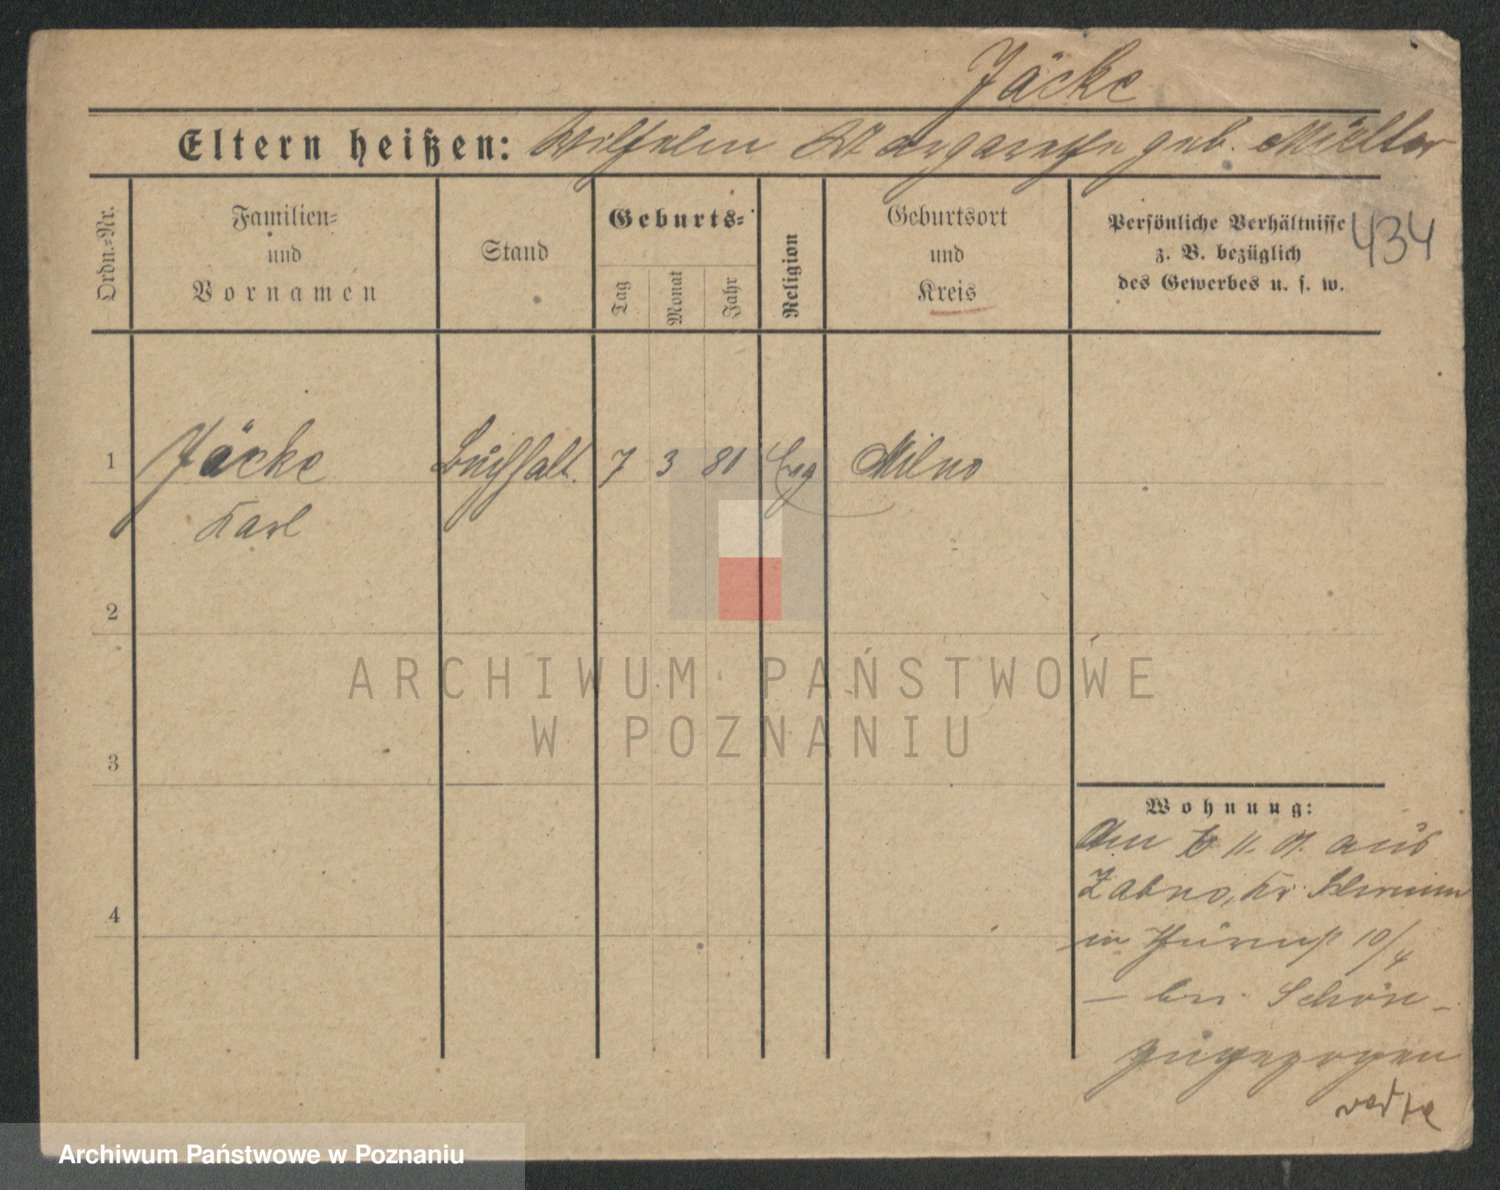 Jäcke
Eltern heißen: Wilhelm Margarethe geb. Müller
434
Ordn.=Nr.
Familien=
und
Vornamen
Stand
Geburts=
Tag
Monat
Jahr
Religion
Geburtsort
und
Kreis
Persönliche Verhältnisse
z. B. bezüglich
des Gewerbes u. s. w.
1 Jäcke Buchhalt. 7 3 81 Evg Milno
Karl
2
3
4
ARCHIWUM PAŃSTWOWE
W POZNANIU
Wohnung:
Am 11. aus
Zabno, Kr. Schrimm
in 10/4
— bei Schön-
zugezogen
Archiwum Państwowe w Poznaniu